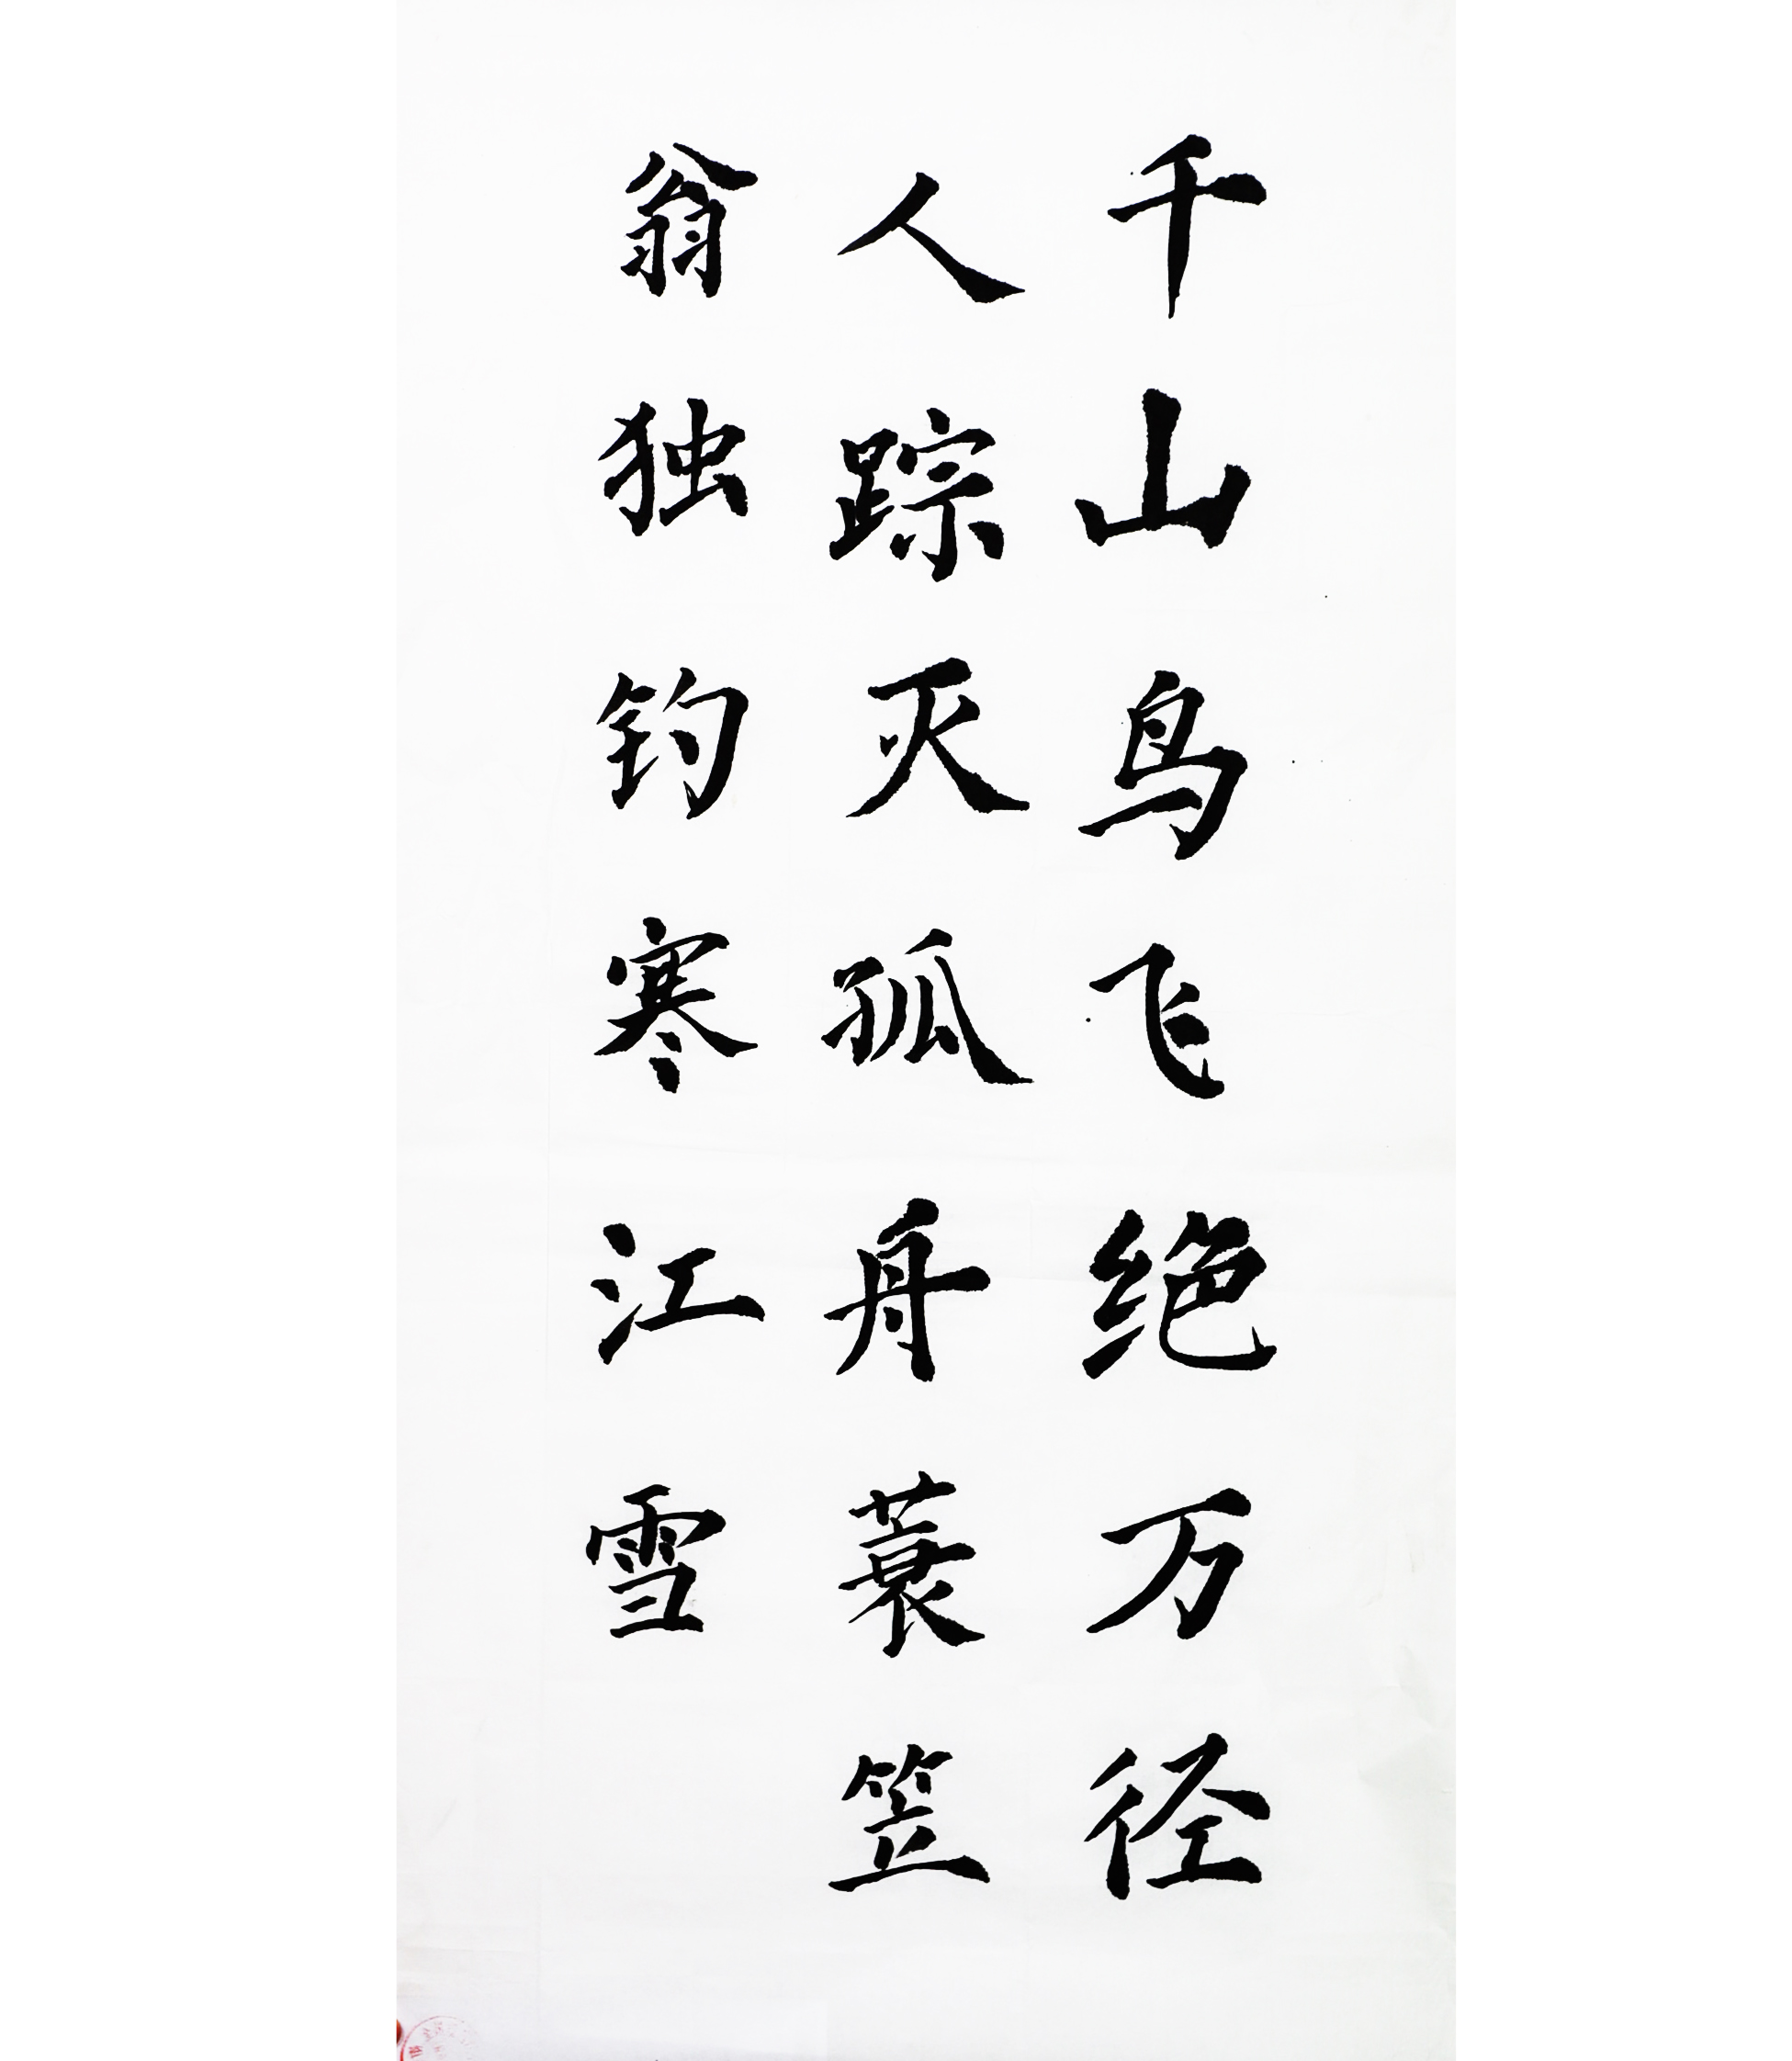 千山鸟飞绝万径
人踪灭孤舟蓑笠
翁独钓寒江雪